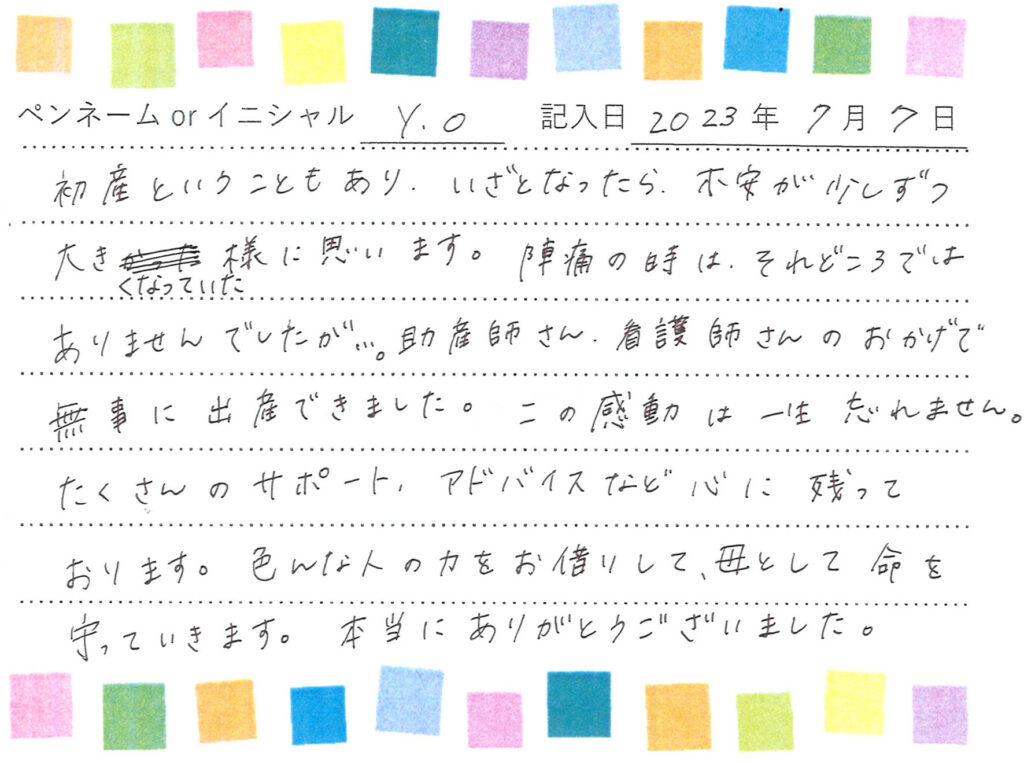 ペンネーム or イニシャル Y.O 記入日 2023年 7月 7日
初産ということもあり、いざとなったら、不安が少しずつ
大きくなっていた様に思います。陣痛の時は、それどころでは
ありませんでしたが…。助産師さん、看護師さんのおかげで
無事に出産できました。この感動は一生忘れません。
たくさんのサポート、アドバイスなど心に残って
おります。色んな人の力をお借りして、母として命を
守っていきます。本当にありがとうございました。